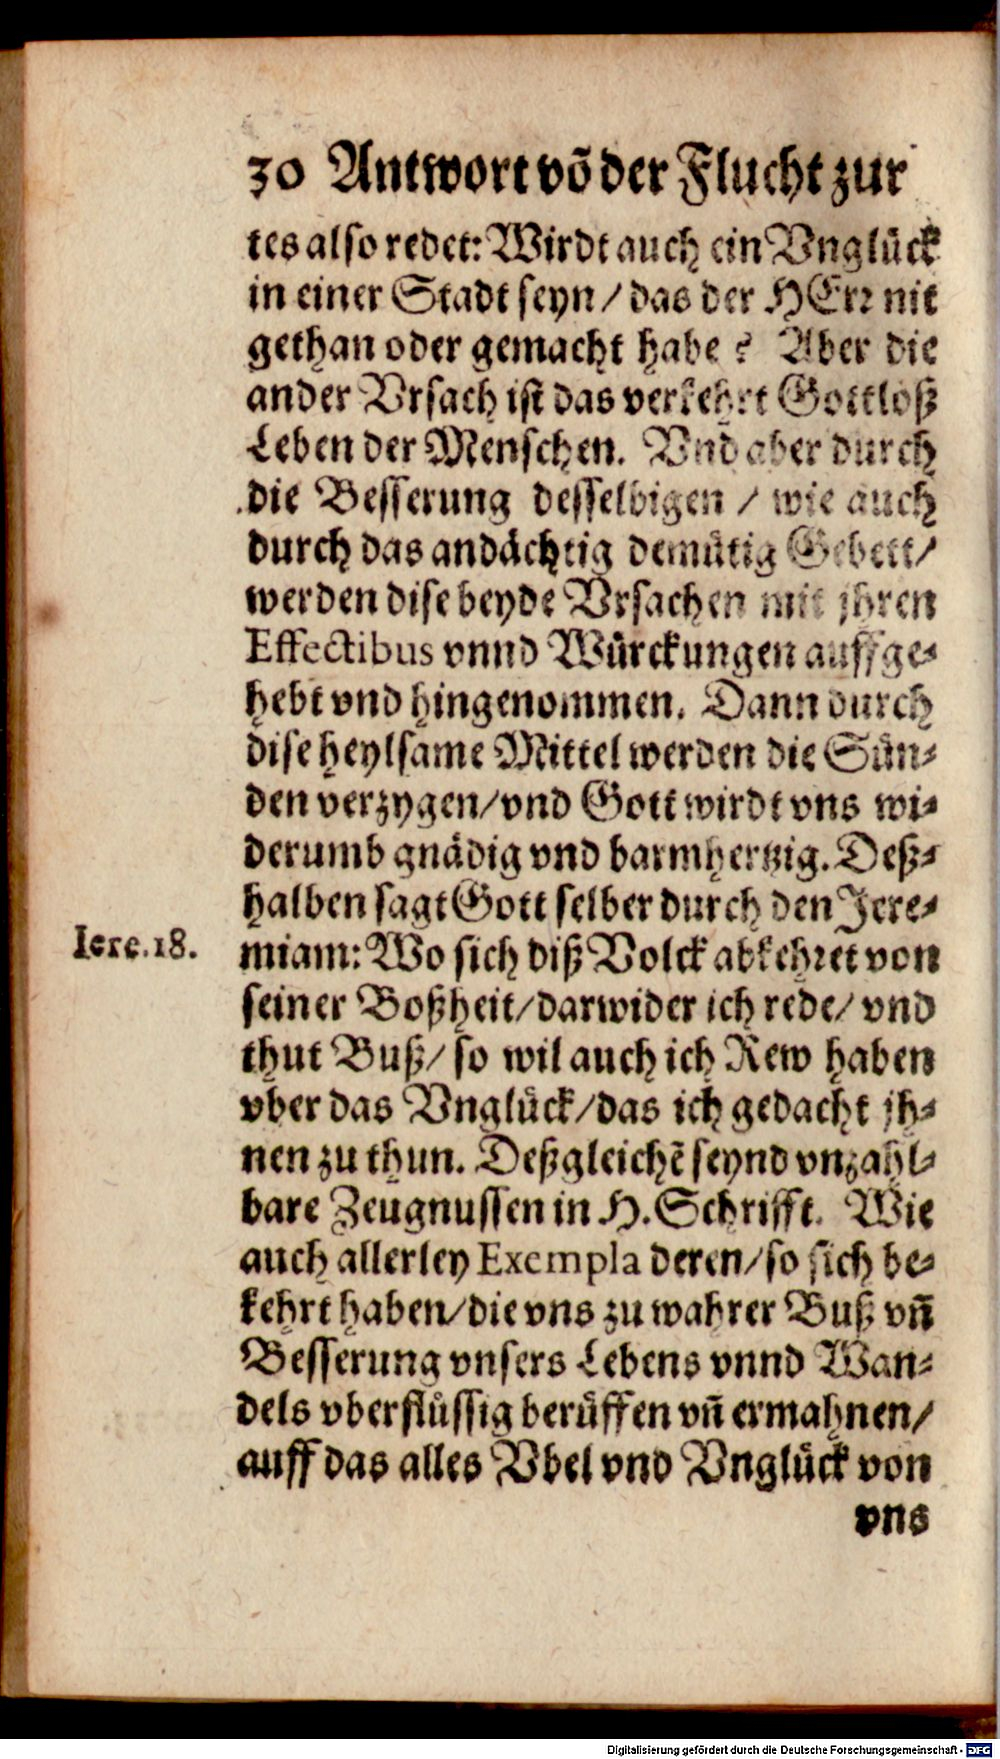 30 Antwort võ der Flucht zur
tes also redet: Wirdt auch ein Vnglück
in einer Stadt seyn / das der HErr nit
gethan oder gemacht habe? Aber die
ander Vrsach ist das verkehrt Gottloß
Leben der Menschen. Vnd aber durch
die Besserung desselbigen / wie auch
durch das andächtig demütig Gebett /
werden dise beyde Vrsachen mit jhren
Effectibus vnnd Würckungen auffge-
hebt vnd hingenommen. Dann durch
dise heylsame Mittel werden die Sün-
den verzygen / vnd Gott wirdt vns wi-
derumb gnädig vnd barmhertzig. Deß-
halben sagt Gott selber durch den Jere-
Iere.18.
miam: Wo sich diß Volck abkehret von
seiner Boßheit / darwider ich rede / vnd
thut Buß / so wil auch ich Rew haben
vber das Vnglück / das ich gedacht jh-
nen zu thun. Deßgleichẽ seynd vnzahl-
bare Zeugnussen in H. Schrifft. Wie
auch allerley Exempla deren / so sich be-
kehrt haben / die vns zu wahrer Buß vñ
Besserung vnsers Lebens vnnd Wan-
dels vberflüssig berüffen vñ ermahnen /
auff das alles Vbel vnd Vnglück von
vns
Digitalisierung gefördert durch die Deutsche Forschungsgemeinschaft - DFG